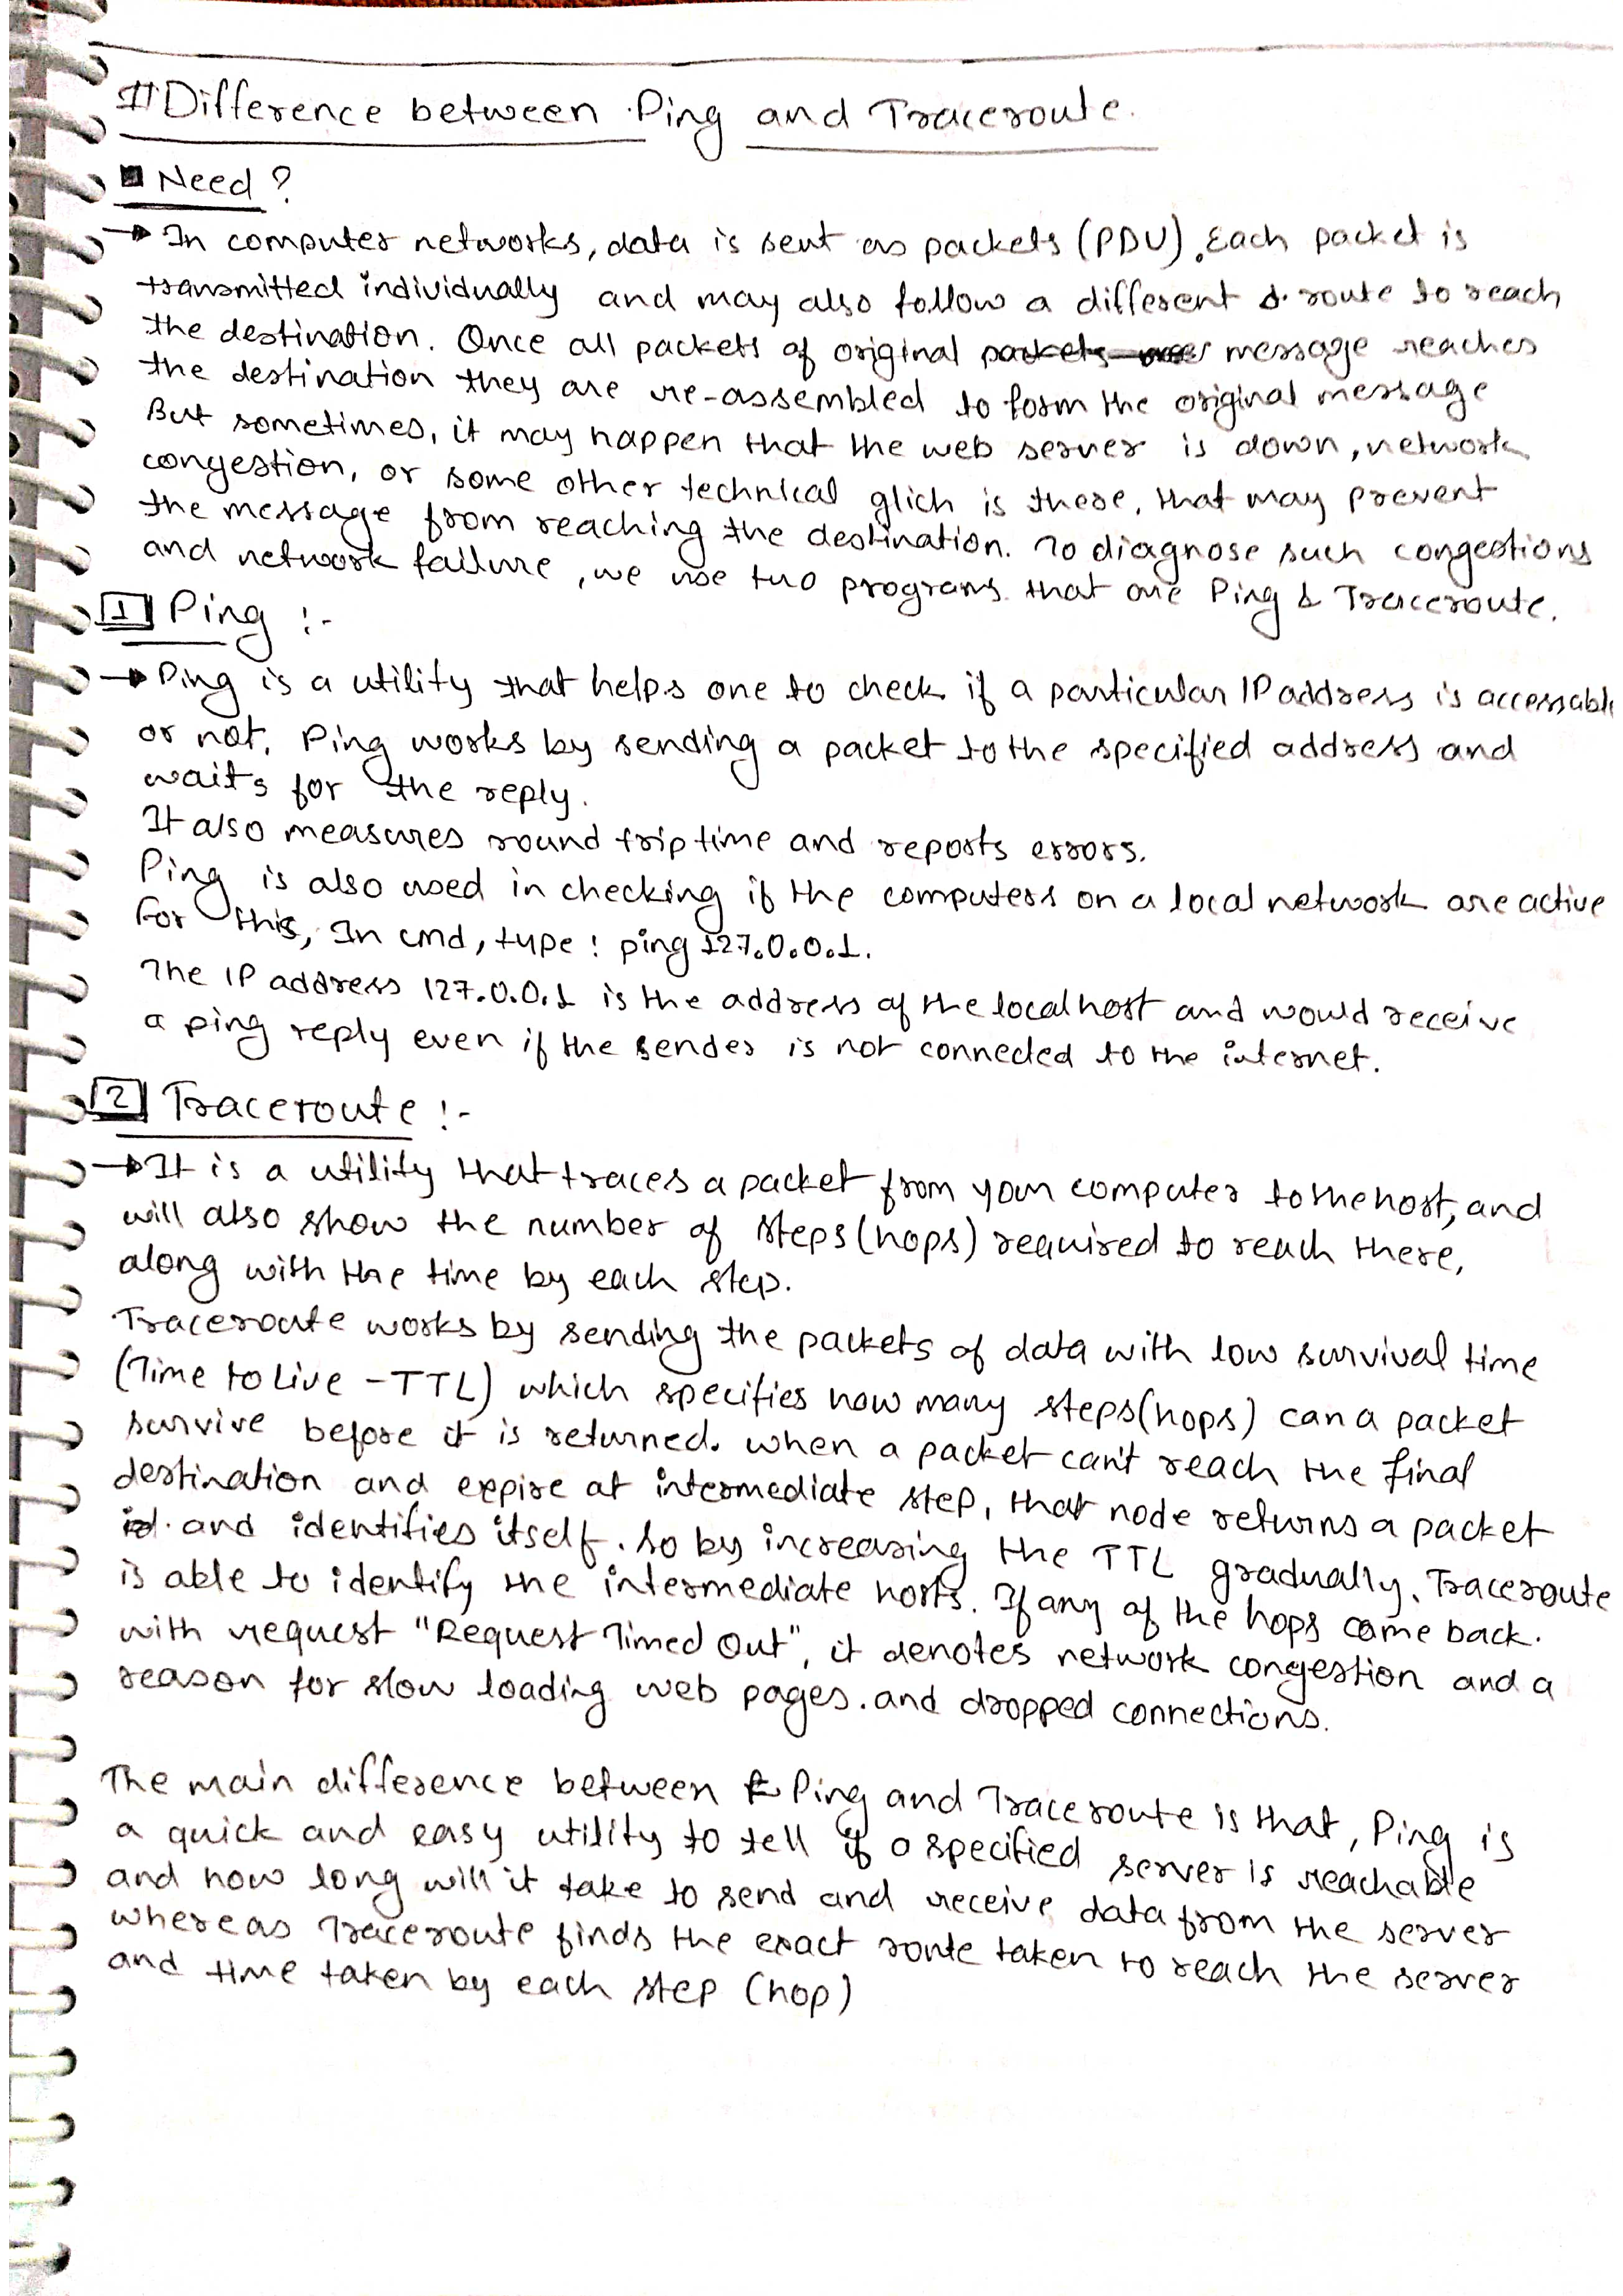 # Difference between Ping and Traceroute.
Need?
→ In computer networks, data is sent as packets (PDU). Each packet is
transmitted individually and may also follow a different route to reach
the destination. Once all packets of original message reaches
the destination they are re-assembled to form the original message
But sometimes, it may happen that the web server is down, network
congestion, or some other technical glich is there, that may prevent
the message from reaching the destination. To diagnose such congestions
and network failure, we use two programs that are Ping & Traceroute.
1 Ping :-
→ Ping is a utility that helps one to check if a particular IP address is accessable
or not. Ping works by sending a packet to the specified address and
waits for the reply.
It also measures round trip time and reports errors.
Ping is also used in checking if the computers on a local network are active
For this, In cmd, type: ping 127.0.0.1.
The IP address 127.0.0.1 is the address of the localhost and would receive
a ping reply even if the sender is not connected to the internet.
2 Traceroute :-
→ It is a utility that traces a packet from your computer to the host, and
will also show the number of steps (hops) required to reach there,
along with the time by each step.
Traceroute works by sending the packets of data with low survival time
(Time to Live - TTL) which specifies how many steps (hops) can a packet
survive before it is returned. When a packet can't reach the final
destination and expire at intermediate step, that node returns a packet
and identifies itself. So by increasing the TTL gradually, Traceroute
is able to identify the intermediate hosts. If any of the hops come back
with request "Request Timed Out", it denotes network congestion and a
reason for slow loading web pages. and dropped connections.
The main difference between Ping and Traceroute is that, Ping is
a quick and easy utility to tell if a specified server is reachable
and how long will it take to send and receive data from the server
whereas Traceroute finds the exact route taken to reach the server
and time taken by each step (hop)